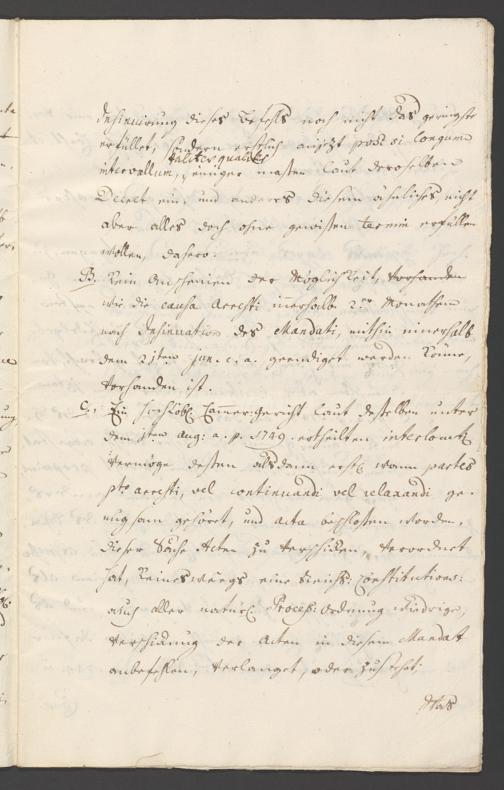 Insinuirung dieses Befehls noch nicht das geringste
erfüllet, sondern erstlich anjetzt post si longum
taliter qualiter
intervallum, einiger maßen laut deroselben
Decret ein, und anders diesem ähnliches nicht
aber alles doch ohne gewißen termin erfüllen
wollen, dahero.
B. Kein Anscheinen der Möglichkeit, vorhanden
wie die causa Arresti innerhalb 2er Monathen
nach Insinuation des Mandati, mithin innerhalb
dem 21ten Jun. c. a. geendiget werden könne,
vorhanden ist.
C. Ein Hochlöbl. Cammer-Gericht laut deßelben unter
dem 1ten Aug: a. p. 1749. ertheilten interlocut.
vermöge deßen alsdann erst, wann partes
pto arresti, vel continuandi vel relaxandi ge-
nugsam gehöret, und acta beschloßen worden,
dieser Sache Acten zu verschicken, verordnet
hat, keineswegs eine Reichs: Constitutions:
auch aller natürl. Process: Ordnung widrige,
Verschickung der Acten in diesem Mandat
anbefehlen, verlanget, oder zustehet.
Das